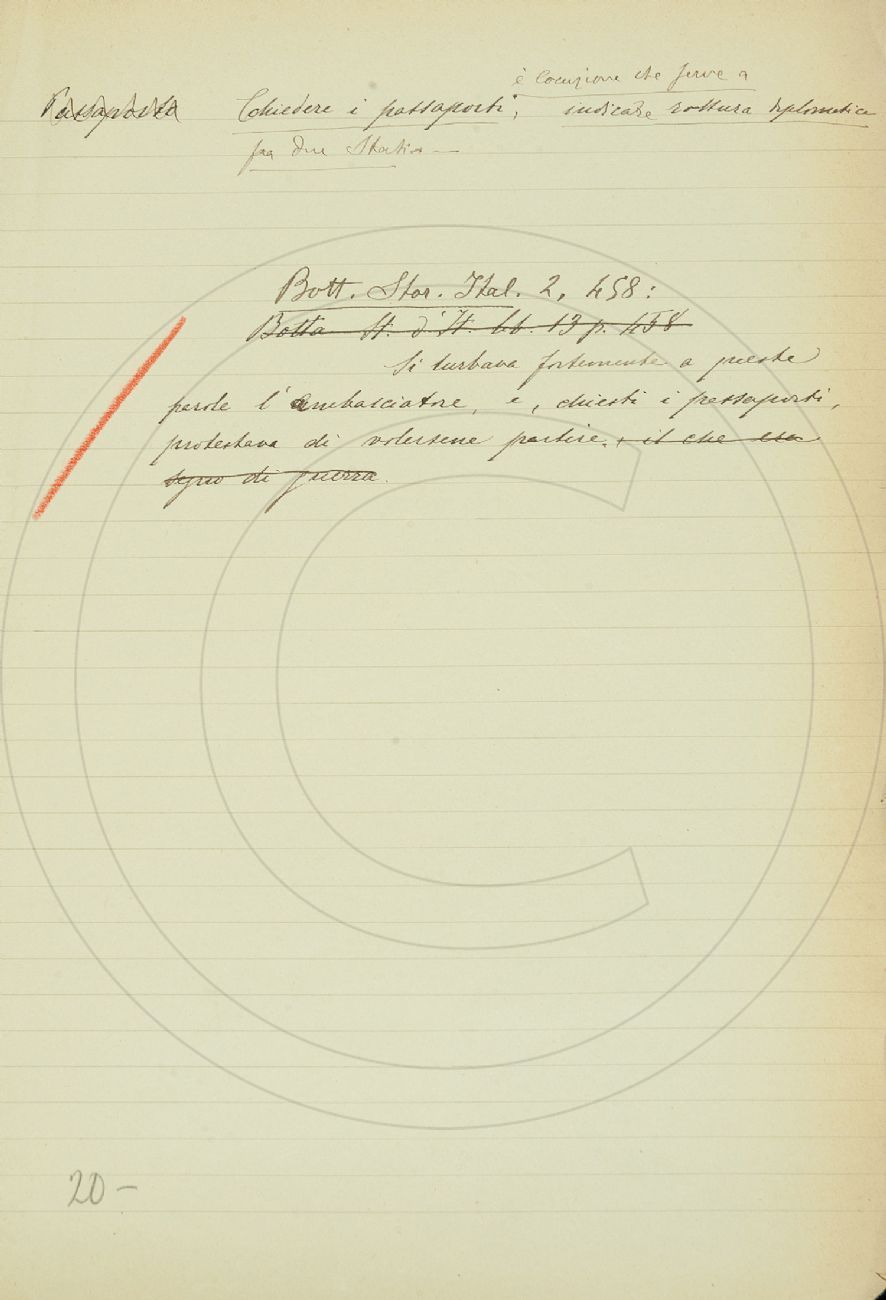 è locuzione che serve a
Passaporto Chiedere i passaporti; indicare rottura diplomatica
fra due Stati. —
Bott. Stor. Ital. 2, 458:
Botta St. d'It. Lb. 13 p. 458
Si turbava fortemente a queste
parole l'ambasciatore, e, chiesti i passaporti,
protestava di volersene partire, il che era
segno di guerra.
20 –